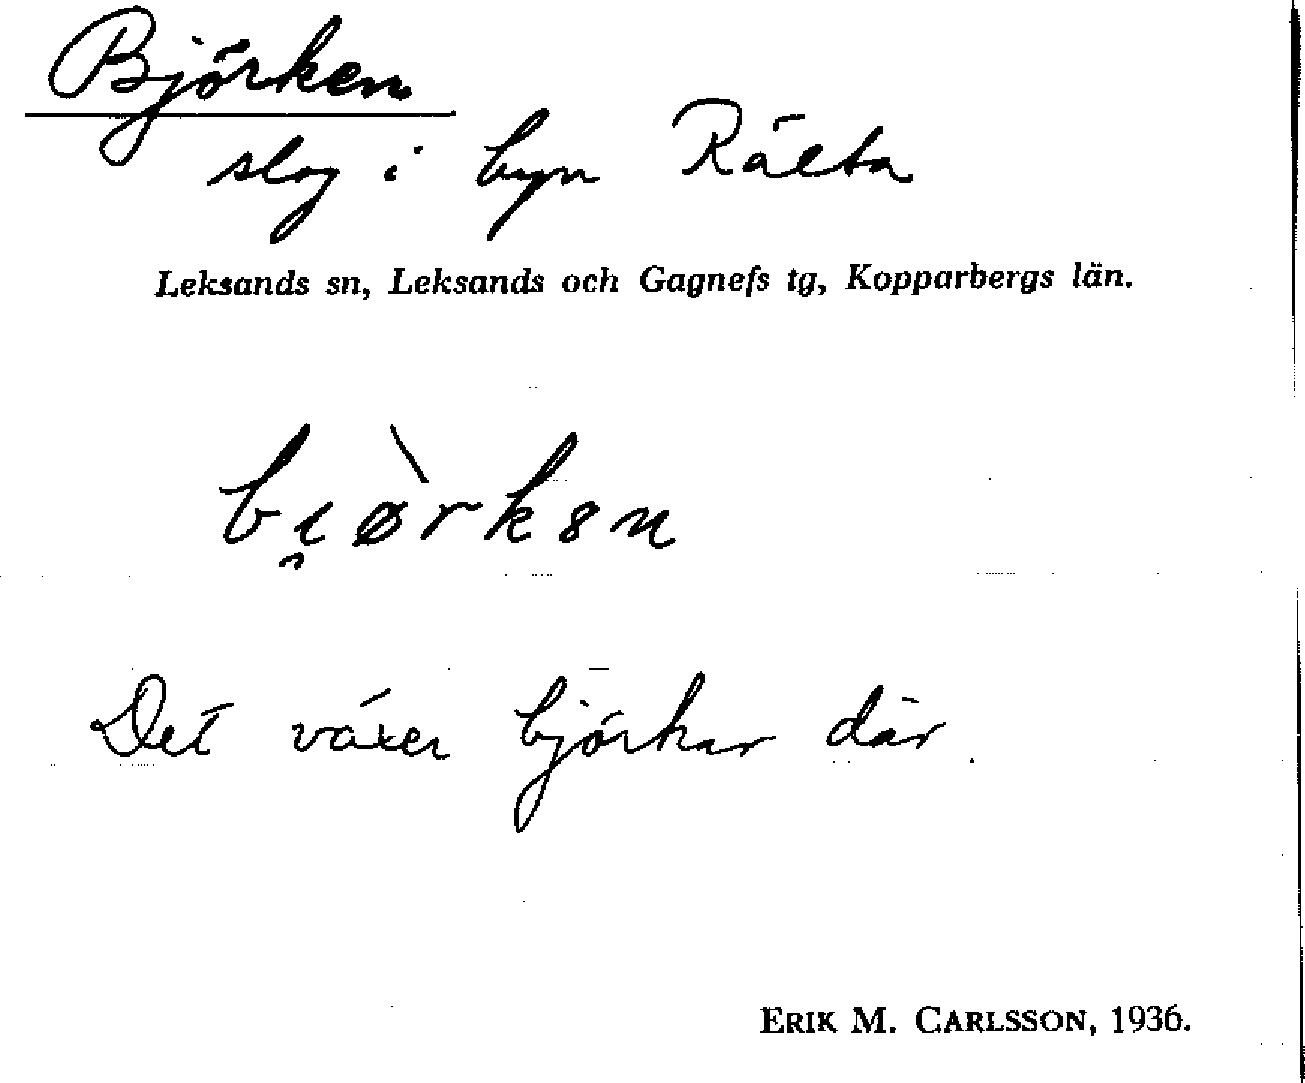 Björken
slog i byn Rälta
Leksands sn, Leksands och Gagnefs tg, Kopparbergs län.
bi̯ø̀rkən
Det växer björkar där.
ERIK M. CARLSSON, 1936.